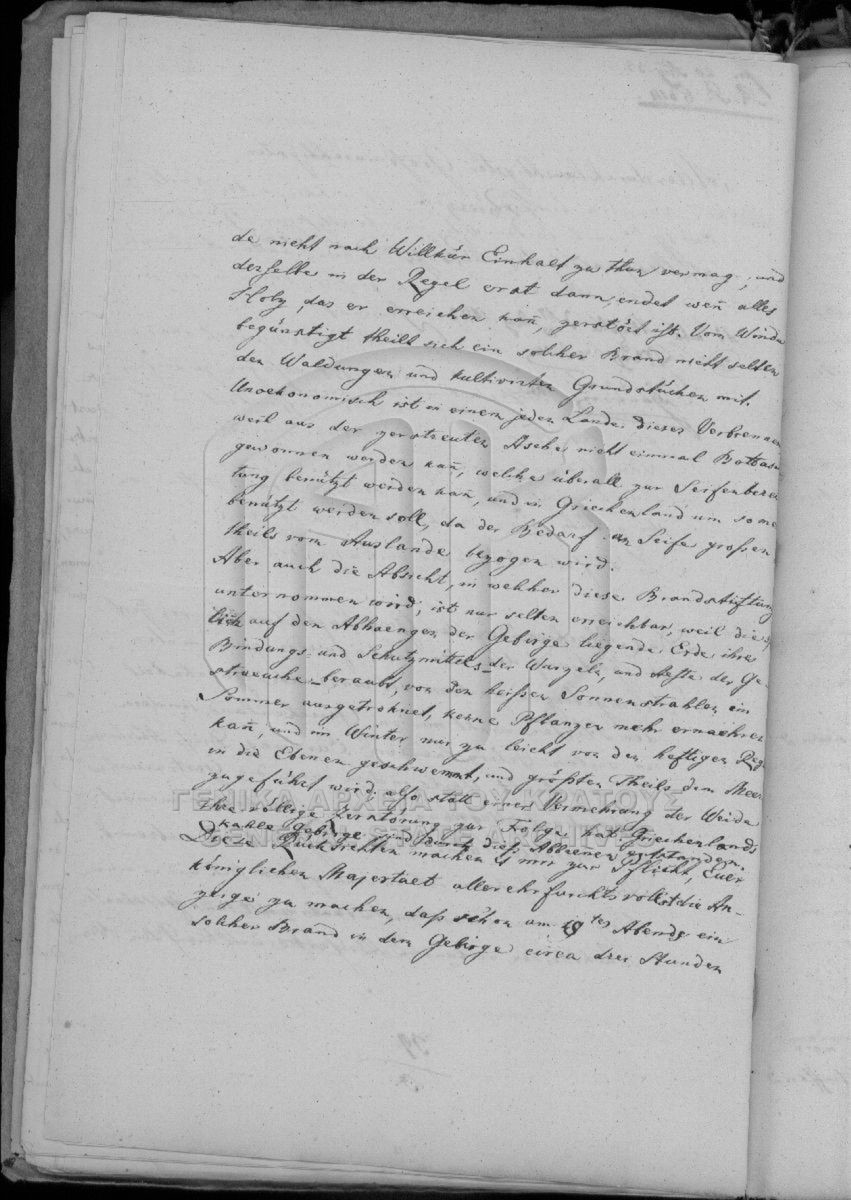 de nicht nach Willkür Einhalt zu thun vermag, und
derselbe in der Regel erst dann endet weñ alles
Holz, das er erreichen kañ, zerstöct ist. Vom Winde
begünstigt theilt sich ein solcher Brand nicht selten
den Waldungen und kultivirten Grundstücken mit.
Unoekonomisch ist in einem jeden Lande dieses Verbrennen
weil aus der zerstreuten Asche nicht einmal Pottasche
gewonnen werden kañ, welche überall zur Seifenberei
tung benützt werden kañ, und in Griechenland um so me
benützt werden soll, da der Bedarf an Seife großen
theils vom Auslande bezogen wird.
Aber auch die Absicht, in welcher diese Brandstiftung
unternommen wird, ist nur selten erreichbar, weil die
auf den Abhaengen der Gebirge liegende Erde ihres
Bindungs und Schutzmittels der Wurzeln, und Aeste der Ge-
straeuche beraubt, von den heißen Sonnenstrahlen im
Sommer ausgetroknet, keine Pflanzen mehr ernaehren
kañ, und im Winter nur zu leicht von den heftigen Reg
in die Ebenen geschwemmt, und größten Theils dem Meer
zugeführt wird; also statt einer Vermehrung der Weide
ihre völlige Zerstörung zur Folge hat. Griechenlands
kahle Gebirge sind durch dieß Abbrenen entstanden.
Diese Rücksichten machen es mir zur Pflicht, Euer
königlichen Majestaet allerehrfurchtsvollst die An-
zeige zu machen, daß schon am 19ten Abends ein
solcher Brand in dem Gebirge circa drei Stunden
ΓΕΝΙΚΑ ΑΡΧΕΙΑ ΤΟΥ ΚΡΑΤΟΥΣ
GENERAL STATE ARCHIVES